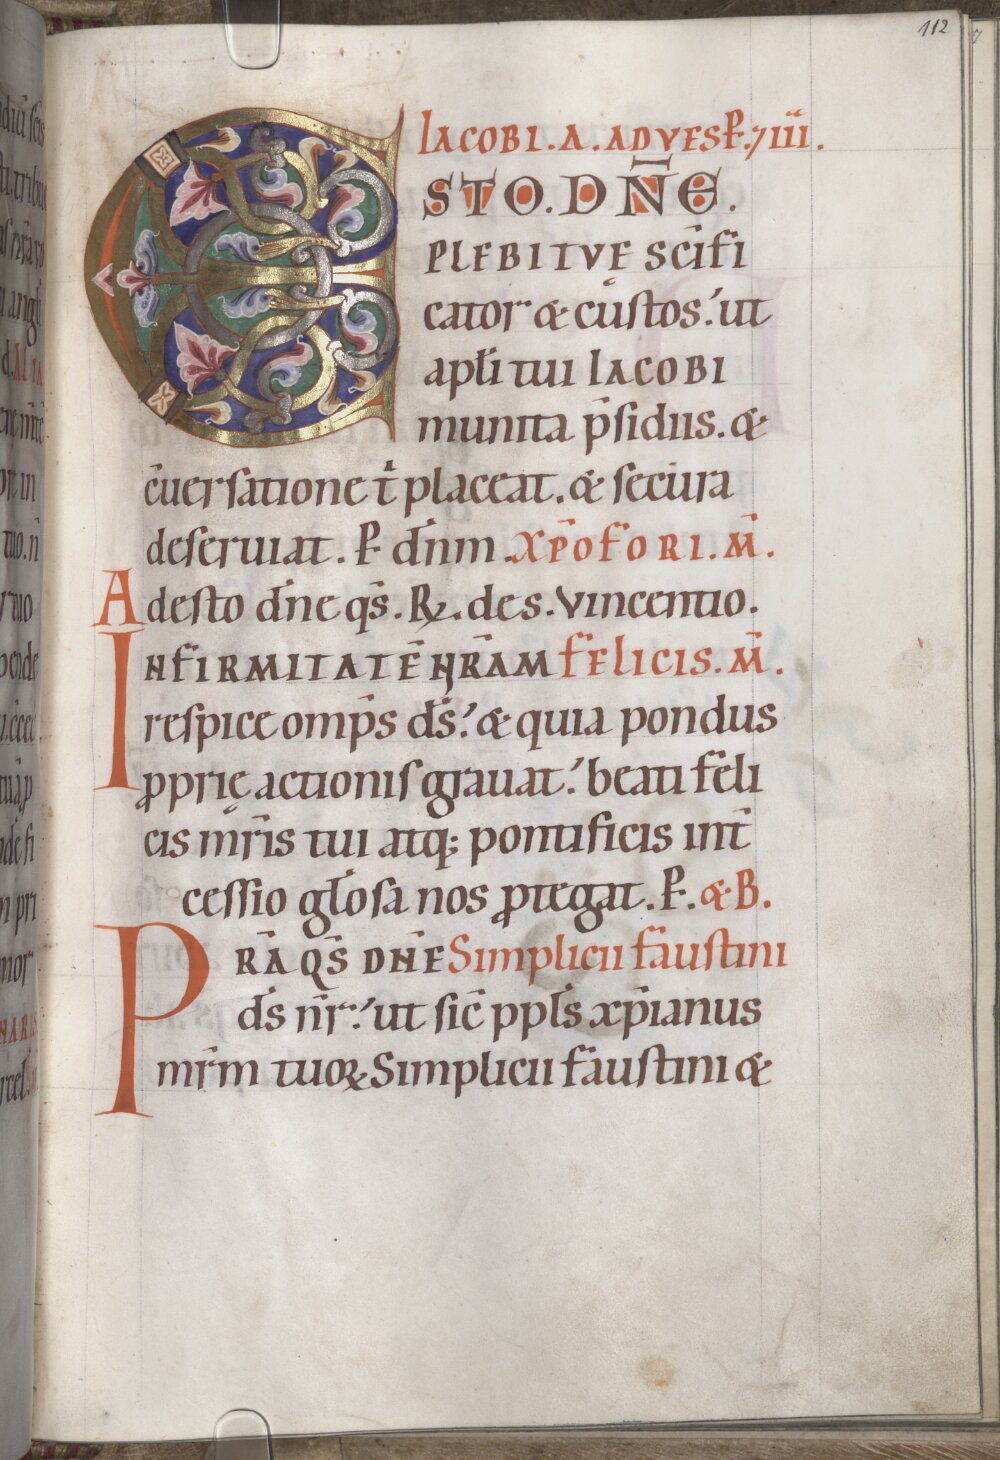 112
IACOBI. A. AD VESP. 7 IIII.
ESTO. DN̄E.
PLEBI TVE SC̄IFI
cator & custos. ut
apl̄i tui IACOBI
munita p̄sidiis. &
c̄uersatione t̄ placeat. & secura
deseruiat. P. dn̄m. XP̄OFORI. M̄.
Adesto dn̄e qs̄. R. des. vincentio.
INFIRMITATĒ NR̄AM FELICIS. M̄.
respice omps̄ ds̄. & quia pondus
ꝓprię actionis grauat. beati feli
cis mr̄is tui atq; pontificis int̄
cessio gl̄osa nos ꝓtegat. P. & B.
PRĀ QS̄ DN̄E Simplicii faustini
ds̄ nr̄. ut sic̄ ppl̄s xp̄ianus
mr̄m tuoꝝ Simplicii faustini &